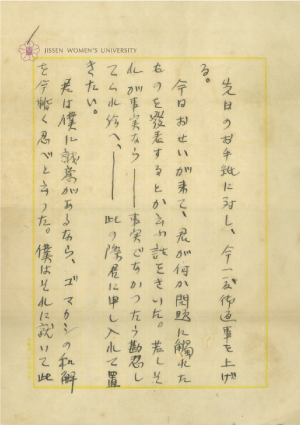 JISSEN WOMEN'S UNIVERSITY
先日のお手紙に対し、今一応御返事を上げ
る。
今日おせいが来て、君が何か問題に觸れた
ものを發表するとか云ふ話をきいた。若しそ
れが事実なら――事実でなかつたら勘忍し
てくれ給へ、――此の際君に申し入れて置
きたい。
君は僕に誠意があるなら、ゴマカシの和解
を今暫く忍べと云つた。僕はそれに就いて此